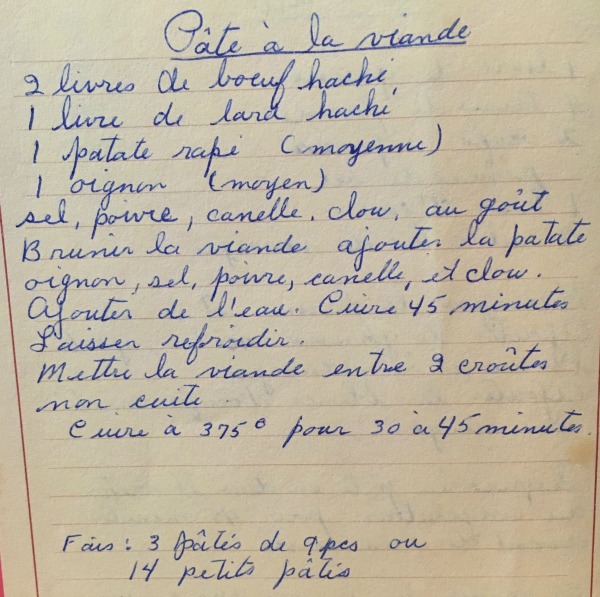 Pâte à la viande
2 livres de boeuf haché
1 livre de lard haché
1 patate rapé (moyenne)
1 oignon (moyen)
sel, poivre, canelle, clou, au goût
Brunir la viande ajouter la patate
oignon, sel, poivre, canelle, et clou.
Ajouter de l'eau. Cuire 45 minutes
Laisser refroidir.
Mettre la viande entre 2 croûtes
non cuite
Cuire à 375° pour 30 à 45 minutes.
Fais: 3 pâtés de 9 pcs ou
14 petits pâtés